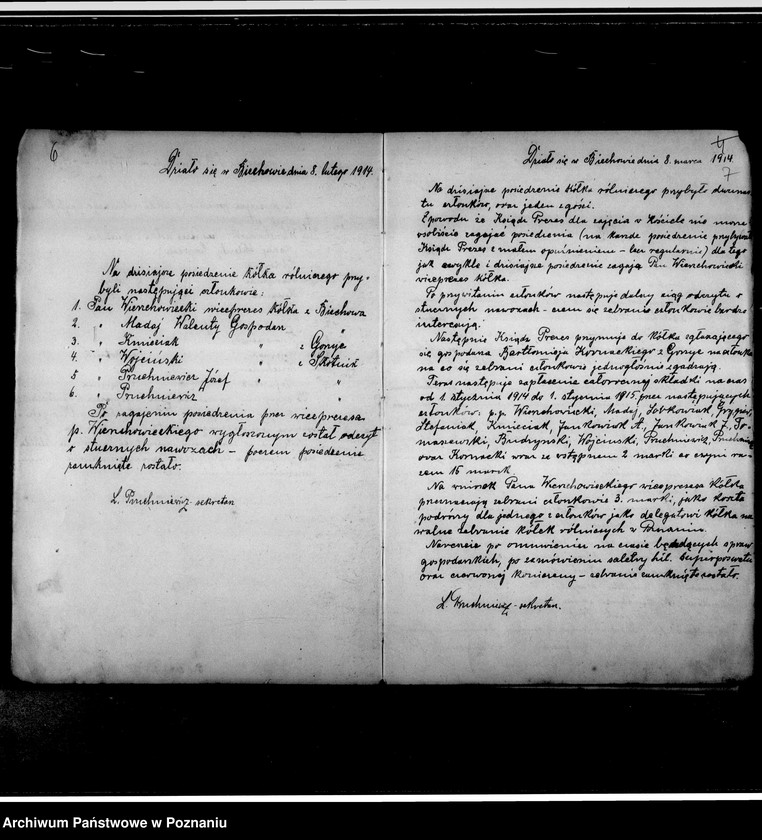 6
Działo się w Biechowie dnia 8. lutego 1914.
Na dzisiajsze posiedzenie Kółka rólniczego przy-
byli następujący członkowie:
1. Pan Wierzchowiecki viceprezes Kółka z Biechowa
2. " Madaj Walenty Gospodarz "
3. " Kmieciak " z Gonyc
4. " Wojciński " z Skotnik
5 " Pruchniewicz Józef " "
6. " Pruchniewicz "
Po zagajeniu posiedzenia przez viceprezesa
p. Wierzchowieckiego wygłoszonym został odczyt
o sztucznych nawozach – poczem posiedzenie
zamknięte zostało.
L. Pruchniewicz - sekretarz
7
Działo się w Biechowie dnia 8. marca 1914
Na dzisiajsze posiedzenie Kółka rólniczego przybyło dwunas-
tu członków, oraz jeden z gości.
Z powodu że Ksiądz Prezes dla zajęcia w Kościele nie może
osobiście zagajać posiedzenia (na każde posiedzenie przybywa
Ksiądz Prezes z małem opuźnieniem – lecz regularnie) dla tego
jak zwykle i dzisiajsze posiedzenie zagaja Pan Wierzchowiecki
viceprezes Kółka.
Po przywitaniu członków następuje dalszy ciąg odczytu o
sztucznych nawozach – czem się zebrani członkowie bardzo
interesują.
Następnie Ksiądz Prezes przyjmuje do Kółka zgłaszającego
się gospodarza Bartłomieja Kornackiego z Gonyc na członka
na co się zebrani członkowie jednogłośnie zgadzają.
Teraz następuje zapłacenie całorocznej składki na czas
od 1. stycznia 1914 do 1. stycznia 1915, przez następujących
członków: p.p. Wierzchowiecki, Madaj, Sobkowiak, Gryger,
Stefaniak, Kmieciak, Jankowiak A., Jankowiak J., To-
maszewski, Budzyński, Wojciński, Pruchniewicz, Pruchniewicz
oraz Kornacki wraz ze wstępnem 2 marki co czyni ra-
zem 15 marek.
Na wniosek Pana Wierzchowieckiego viceprezesa Kółka
przeznaczają zebrani członkowie 3. marki, jako koszta
podróży dla jednego z członków jako delegatowi kółka na
walne zebranie kółek rólniczych w Poznaniu.
Nareszcie po omówieniu na czasie będących spraw
gospodarskich, po zamówieniu saletry chil. superfosfatu
oraz czerwonej koniczyny – zebranie zamknięte zostało.
L. Pruchniewicz - sekretarz.
Archiwum Państwowe w Poznaniu